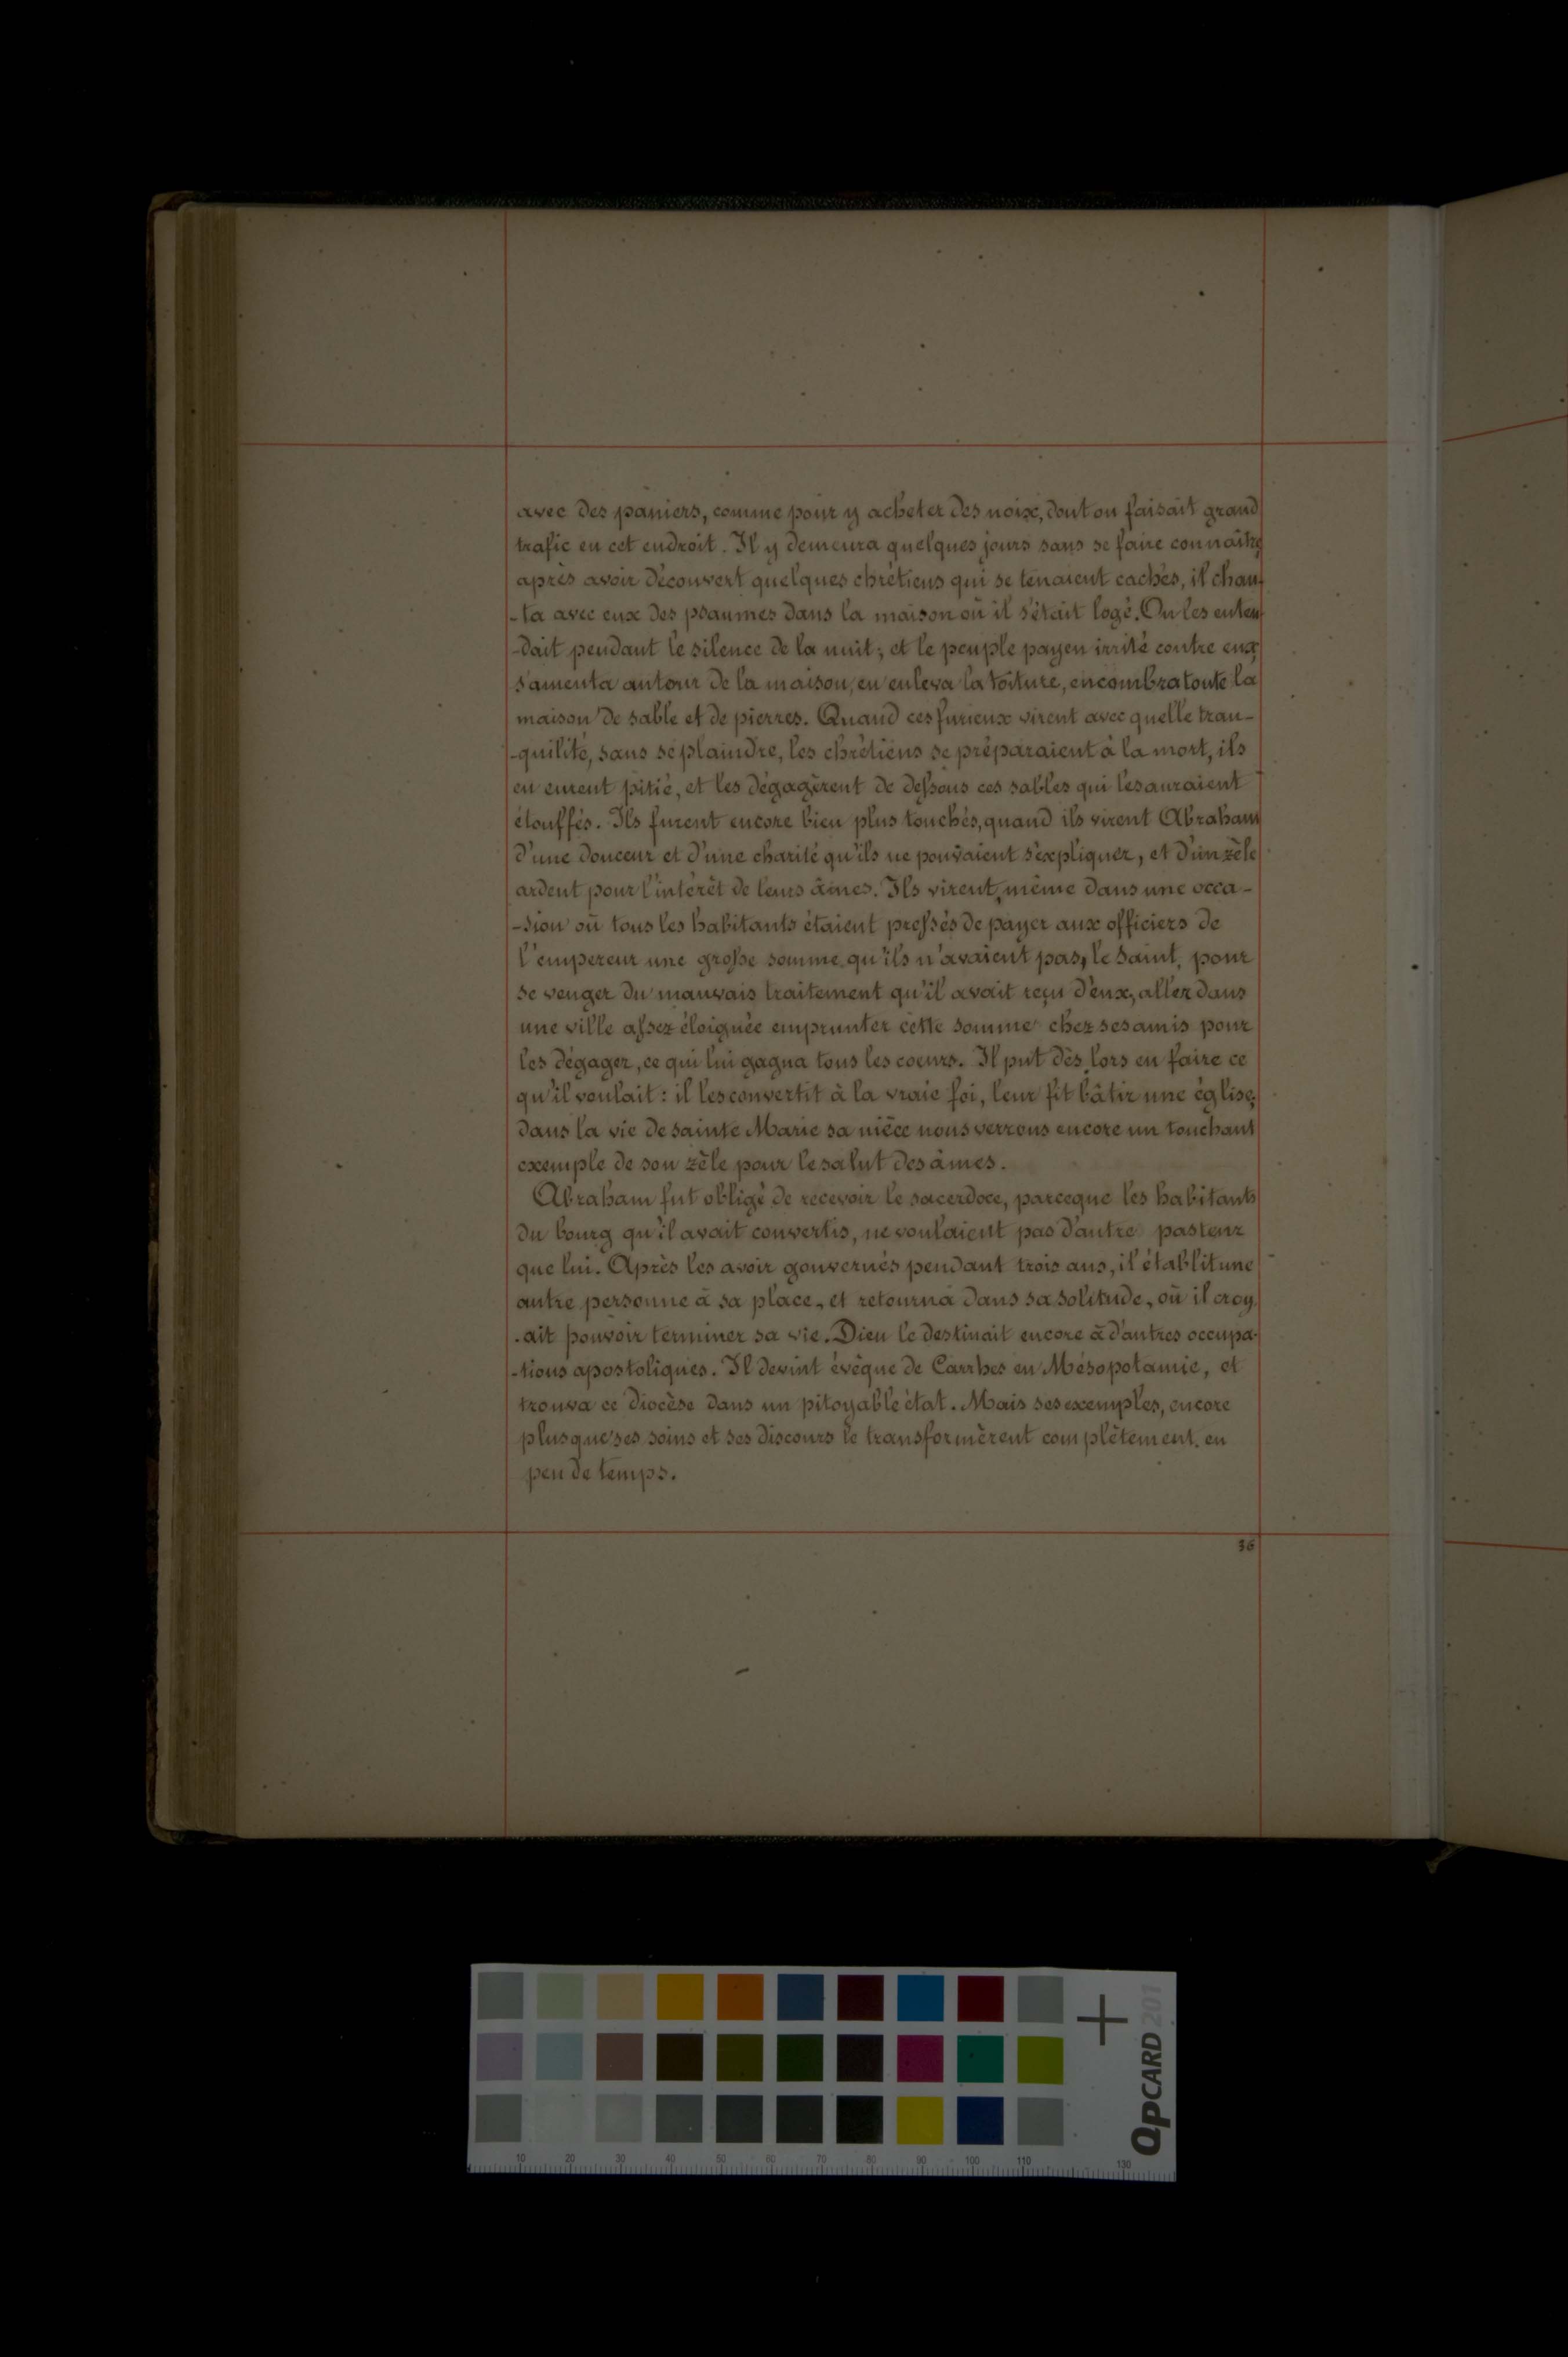 avec des paniers, comme pour y acheter des noix, dont on faisait grand
trafic en cet endroit. Il y demeura quelques jours sans se faire connaître,
après avoir découvert quelques chrétiens qui se tenaient cachés, il chan-
-ta avec eux des psaumes dans la maison où il s'était logé. On les enten-
-dait pendant le silence de la nuit; et le peuple payen irrité contre eux,
s'ameuta autour de la maison, en enleva la toiture, encombra toute la
maison de sable et de pierres. Quand ces furieux virent avec quelle tran-
-quilité, sans se plaindre, les chrétiens se préparaient à la mort, ils
en eurent pitié, et les dégagèrent de dessous ces sables qui les auraient
étouffés. Ils furent encore bien plus touchés, quand ils virent Abraham
d'une douceur et d'une charité qu'ils ne pouvaient s'expliquer, et d'un zèle
ardent pour l'intérêt de leurs âmes. Ils virent, même dans une occa-
-sion où tous les habitants étaient pressés de payer aux officiers de
l'empereur une grosse somme qu'ils n'avaient pas, le Saint, pour
se venger du mauvais traitement qu'il avait reçu d'eux, aller dans
une ville assez éloignée emprunter cette somme chez ses amis pour
les dégager, ce qui lui gagna tous les coeurs. Il put dès lors en faire ce
qu'il voulait : il les convertit à la vraie foi, leur fit bâtir une église;
dans la vie de sainte Marie sa nièce nous verrons encore un touchant
exemple de son zèle pour le salut des âmes.
Abraham fut obligé de recevoir le sacerdoce, parceque les habitants
du bourg qu'il avait convertis, ne voulaient pas d'autre pasteur
que lui. Après les avoir gouvernés pendant trois ans, il établit une
autre personne à sa place, et retourna dans sa solitude, où il croy-
-ait pouvoir terminer sa vie. Dieu le destinait encore à d'autres occupa-
-tions apostoliques. Il devint évêque de Carrhes en Mésopotamie, et
trouva ce diocèse dans un pitoyable état. Mais ses exemples, encore
plus que ses soins et ses discours le transformèrent complètement, en
peu de temps.
36
QPCARD 201
10 20 30 40 50 60 70 80 90 100 110 130